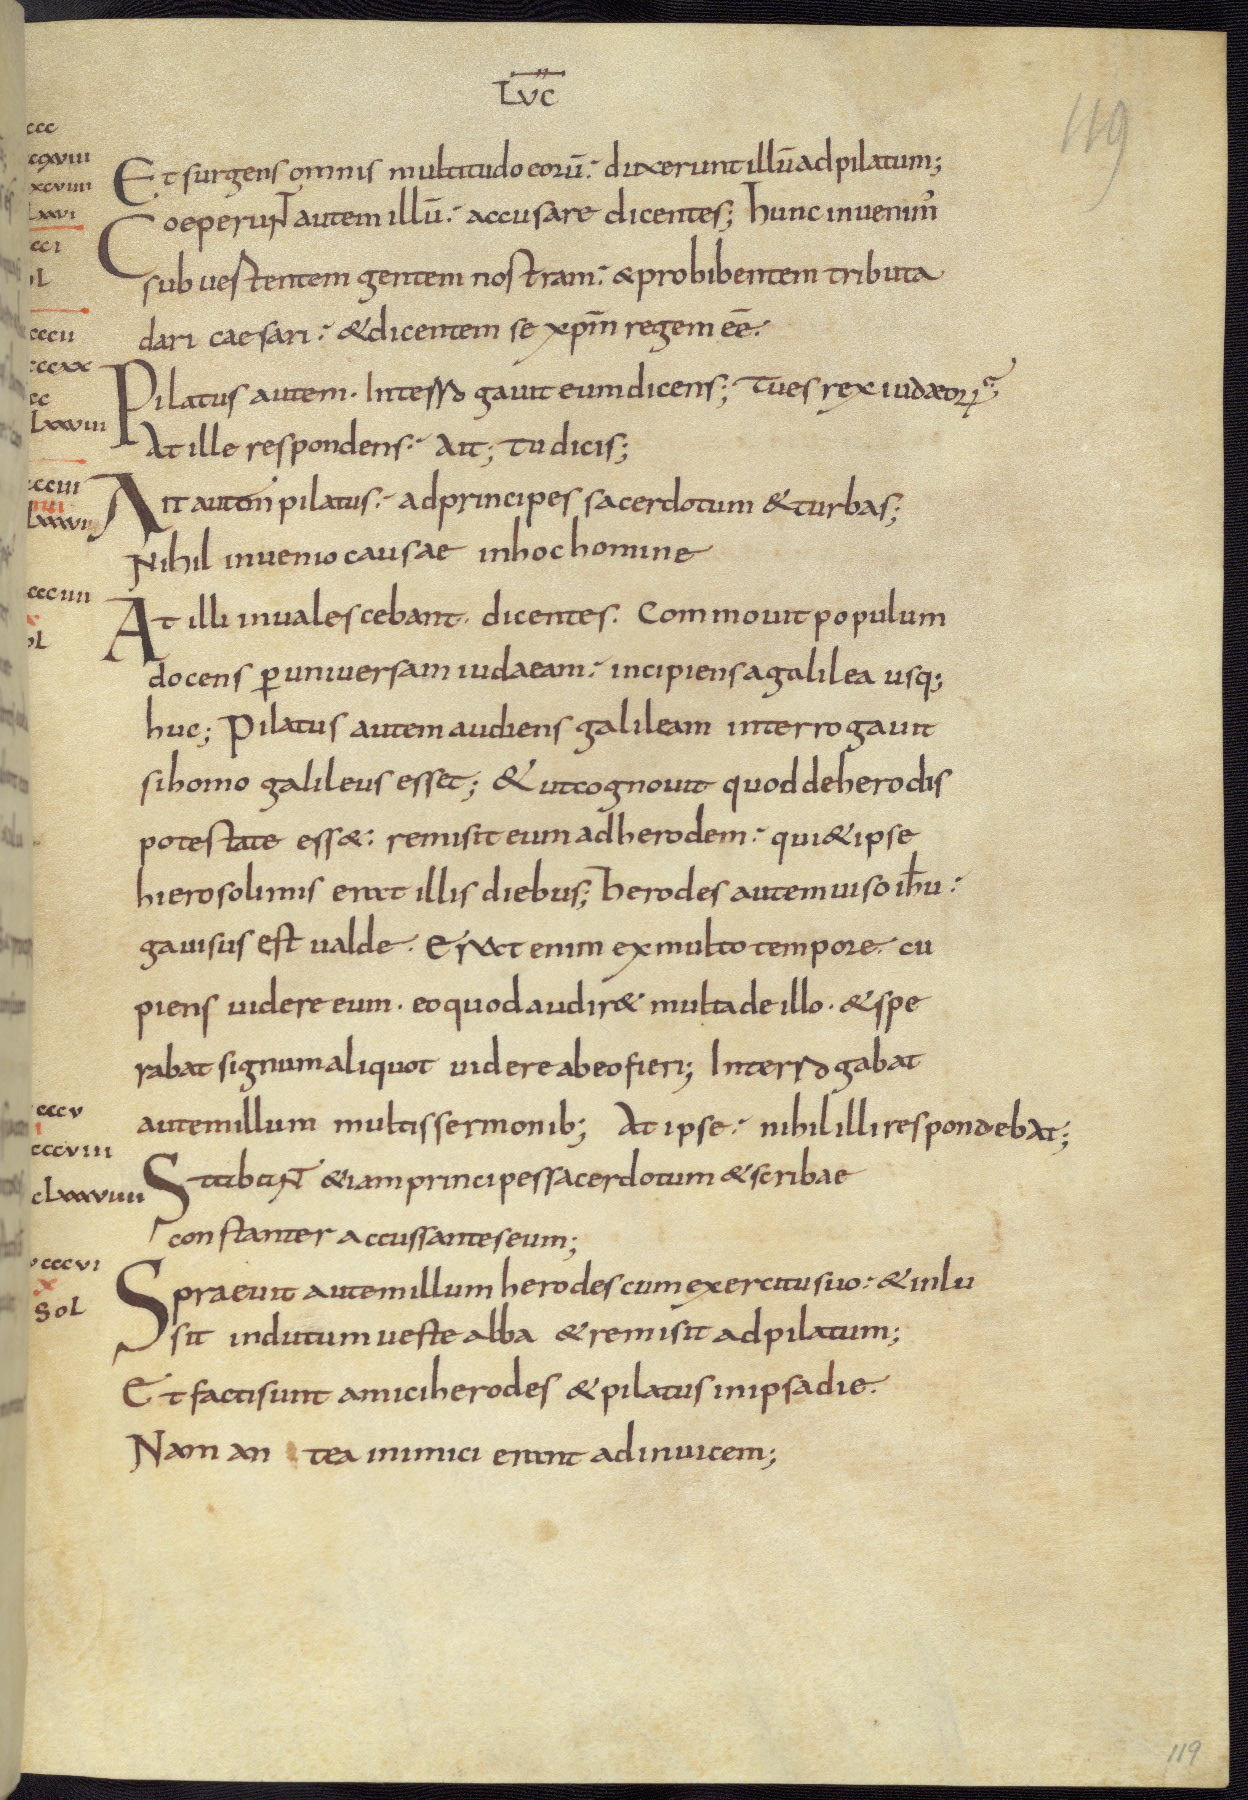 LVC
119
ccc
ccxviii
xcviiii
Lxxvi
Et surgens omnis multitudo eorū: duxerunt illū ad pilatum;
Coeperunt autem illū: accusare dicentes; hunc inuenim᾽
ccci
oL
subuestentem gentem nostram: & probibentem tributa
ccccii
dari caesari: & dicentem se xp̄m regem eē:
cccxx
cc
Lxxviii
Pilatus autem. Interrogauit eum dicens; Tu es rex iudaeorꝝ;
At ille respondens: Ait; tu dicis;
ccciii
Lxxxvi
Ait autem pilatus: ad principes sacerdotum & turbas;
Nihil inuenio causae in hoc homine
cccciiii
x
oL
At illi inualescebant. dicentes. Commouit populum
docens ꝑ uniuersam iudaeam: incipiens a galilea usq;
huc; Pilatus autem audiens galileam interrogauit
si homo galileus esset; & ut cognouit quod de herodis
potestate ess&: remisit eum ad herodem: qui & ipse
hierosolimis erat illis diebus; herodes autem uiso ih̄u:
gauisus est ualde. Erat enim ex multo tempore. cu
piens uidere eum. eo quod audir& multa de illo. & spe
rabat signum aliquot uidere ab eo fieri; Interrogabat
autem illum multis sermonib; At ipse: nihil illi respondebat;
cccv
i
cccviii
cLxxxviiii
Stabant &iam principes sacerdotum & scribae
constanter accussantes eum;
ccccvi
x
SoL
Spraeuit autem illum herodes cum exercitu suo: & inlu
sit indutum ueste alba & remisit ad pilatum;
Et facti sunt amici herodes & pilatus in ipsa die.
Nam an tea inimici erant ad inuicem;
119